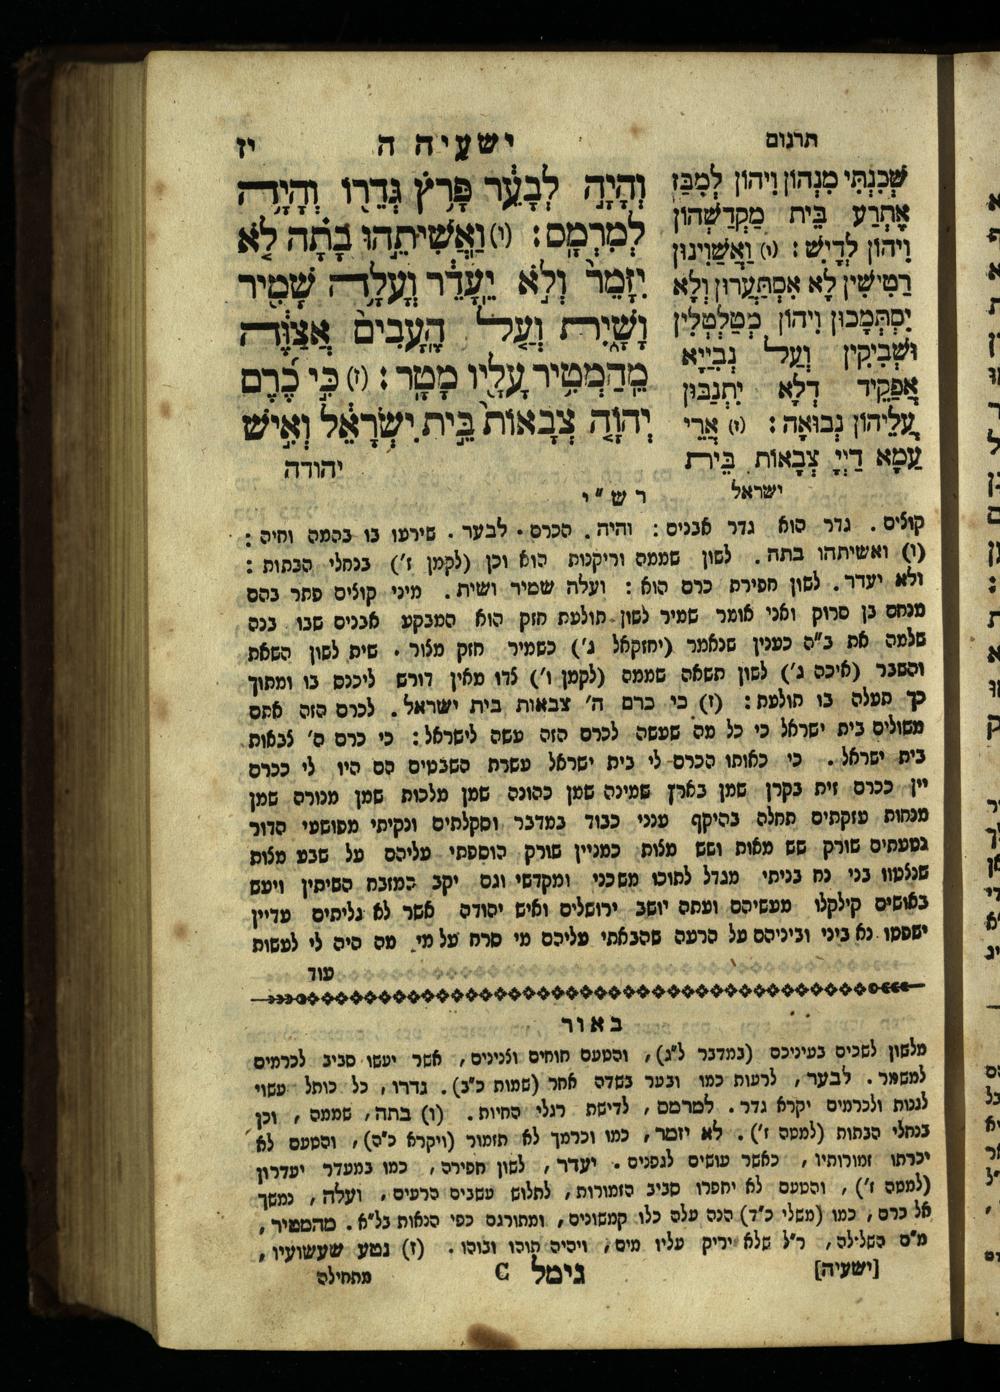 תרגום
ישעיה ה
יז
וְהָיָה לְבָעֵר פָּרֹץ גְּדֵרוֹ וְהָיָה
לְמִרְמָס: (ו) וַאֲשִׁיתֵהוּ בָתָה לֹא
יִזָּמֵר וְלֹא יֵעָדֵר וְעָלָה שָׁמִיר
וָשָׁיִת וְעַל הֶעָבִים אֲצַוֶּה
מֵהַמְטִיר עָלָיו מָטָר: (ז) כִּי כֶרֶם
יְהוָֹה צְבָאוֹת בֵּית יִשְׂרָאֵל וְאִישׁ
יהודה
שְׁכִנְתִּי מִנְהוֹן וִיהוֹן לְמִבַּז
אֲתְרַע בֵּית מַקְדַשְׁהוֹן
וִיהוֹן לְדָיִשׁ: (ו) וַאֲשַׁוִּינוּן
רַטִישִׁין לָא אִסְתַּעֲרוּן וְלָא
יִסְתְּמָכוּן וִיהוֹן מְטַלְטְלִין
וּשְׁבִיקִין וְעַל נְבִיַּיָא
אֲפַקֵיד דְלָא יִתְנַבּוּן
עֲלֵיהוֹן נְבוּאָה: (ז) אֲרֵי
עַמָא דַיְיָ צְבָאוֹת בֵּית
ישראל
רש"י
קולים. גדר הוא גדר אבנים: והיה. הכרם. לבער. שירעו בו בהמה וחיה:
(ו) ואשיתהו בתה. לשון שממה וריקנות הוא וכן (לקמן ז') בנחלי הבתות:
ולא יעדר. לשון חפירת כרם הוא: ועלה שמיר ושית. מיני קולים פתר בהם
מנחם בן סרוק ואני אומר שמיר לשון תולעת חזק הוא המבקע אבנים שבו בנה
שלמה את ב"ה כענין שנאמר (יחזקאל ג') כשמיר חזק מצור. שית לשון השאת
והשבר (איכה ג') לשון תשאה שממה (לקמן ו') צדו מאין דורש ליכנס בו ומתוך
כך תעלה בו תולעת: (ז) כי כרם ה' צבאות בית ישראל. לכרם הזה אתם
משולים בית ישראל כי כל מה שעשה לכרם הזה עשה לישראל: כי כרם ה' צבאות
בית ישראל. כי כאותו הכרם לי בית ישראל עשרת השבטים הם היו לי ככרם
יין ככרם זית בקרן שמן בארץ שמינה שמן כהונה שמן מלכות שמן מנורה שמן
מנחות עזקתים תחלה בהיקף ענני כבוד במדבר וסקלתים ונקיתי מפושעי הדור
נטעתים שורק שש מאות ושש מצות כמניין שורק הוספתי עליהם על שבע מצות
שנצטוו בני נח בניתי מגדל לתוכו משכני ומקדשי וגם יקב המזבח השיתין ויעש
באושים קילקלו מעשיהם ועתה יושב ירושלים ואיש יהודה אשר לא גליתים עדיין
ישפטו נא ביני וביניהם על הרעה שהבאתי עליהם מי סרח על מי מה היה לי לעשות
עוד
באור
מלשון לשכים בעיניכם (במדבר ל"ג), והטעם חוחים וצנינים, אשר יעשו סביב לכרמים
למשמר. לבער, לרעות כמו ובער בשדה אחר (שמות כ"ב). גדרו, כל כותל עשוי
לגנות ולכרמים יקרא גדר. למרמס, לדישת רגלי החיות. (ו) בתה, שממה, וכן
בנחלי הבתות (למטה ז'). לא יזמר, כמו וכרמך לא תזמור (ויקרא כ"ה), והטעם לא
יכרתו זמורותיו, כאשר עושים לגפנים. יעדר, לשון חפירה, כמו במעדר יעדרון
(למטה ז'), והטעם לא יחפרו סביב הזמורות, לתלוש עשבים הרעים, ועלה, נמשך
אל כרם, כמו (משלי כ"ד) הנה עלה כלו קמשונים, ומתורגם כפי הנאות בל"א. מהמטיר,
מ"ם השלילה, ר"ל שלא יריק עליו מים, ויהיה תוהו ובוהו. (ז) נטע שעשועיו,
[ישעיה]
גימל C
מתחילה